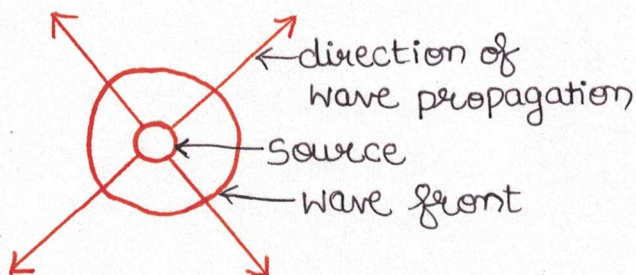 direction of
wave propagation
Source
wave front